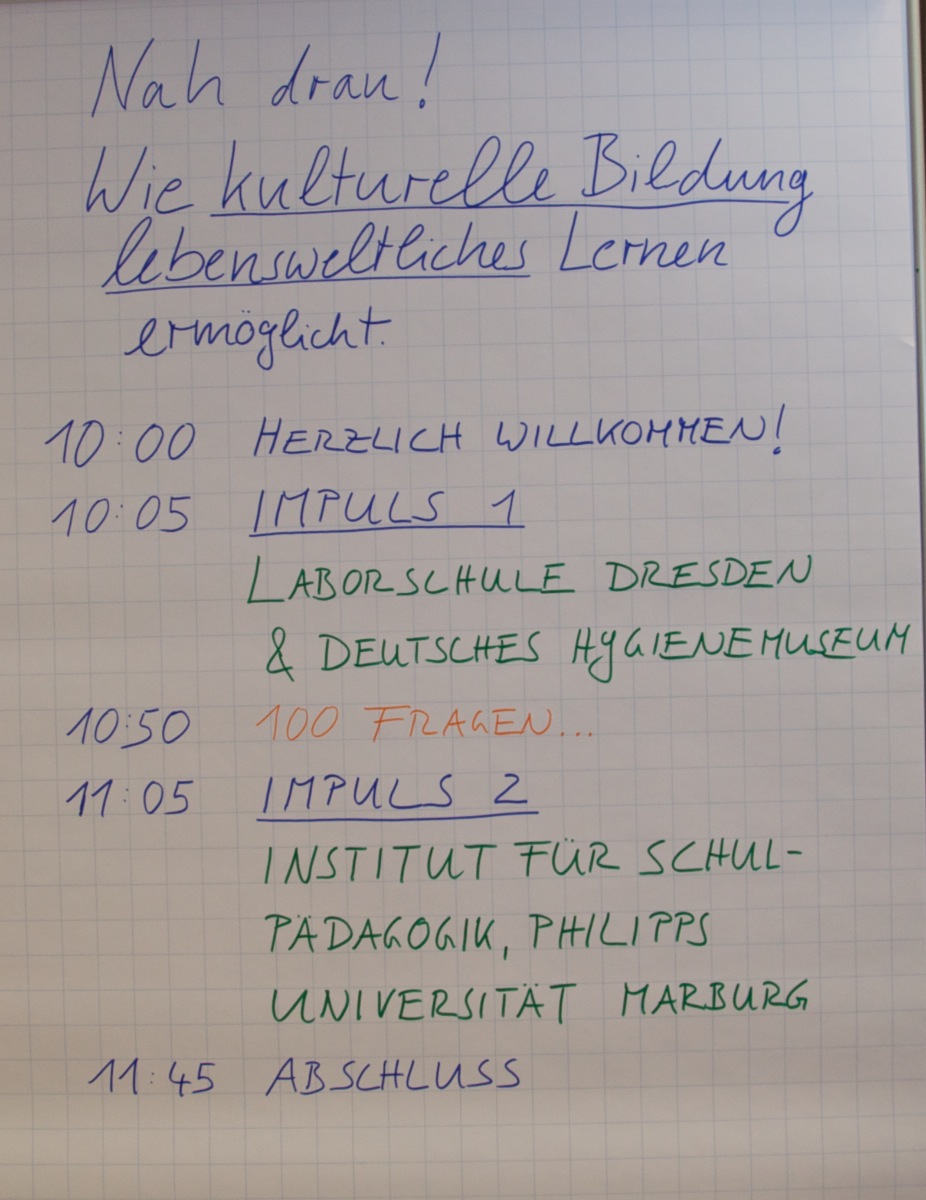 Nah dran!
Wie kulturelle Bildung
lebensweltliches Lernen
ermöglicht.
10:00 HERZLICH WILLKOMMEN!
10:05 IMPULS 1
LABORSCHULE DRESDEN
& DEUTSCHES HYGIENEMUSEUM
10:50 100 FRAGEN...
11:05 IMPULS 2
INSTITUT FÜR SCHUL-
PÄDAGOGIK, PHILIPPS
UNIVERSITÄT MARBURG
11:45 ABSCHLUSS